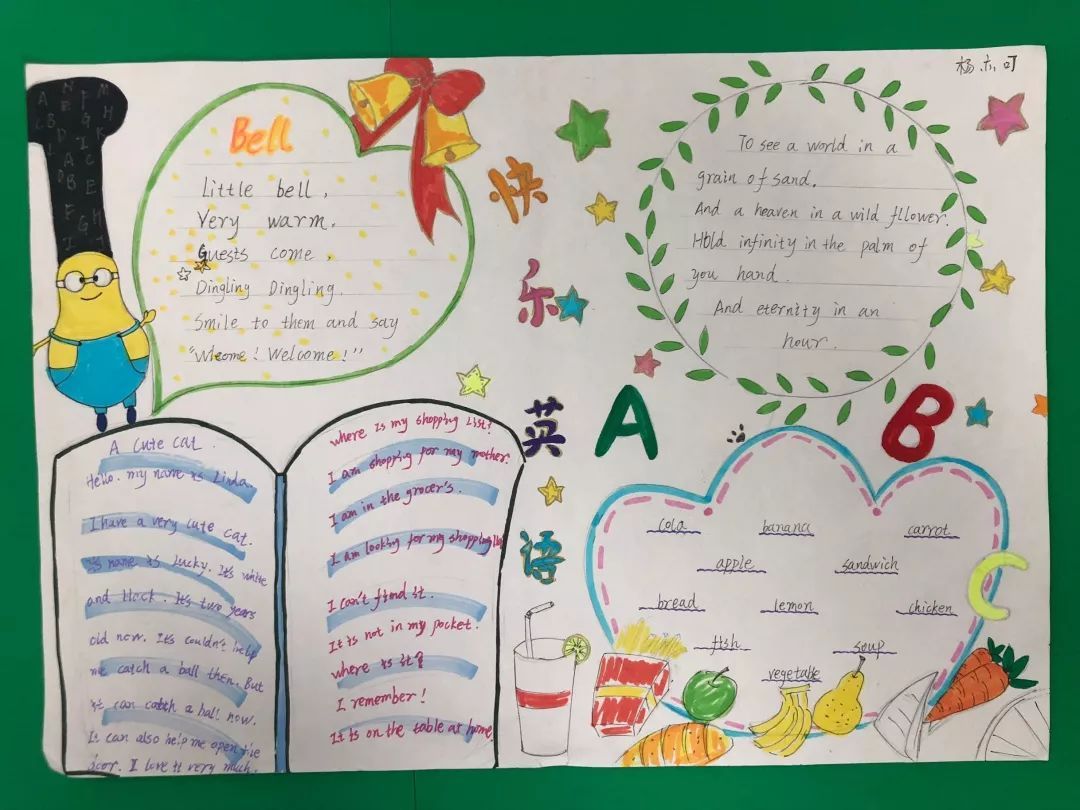 杨亦可
Bell
Little bell,
Very warm.
Guests come,
Dingling Dingling.
Smile to them and say
"Wlcome! Welcome!"
快
乐
英
语
To see a world in a
grain of sand.
And a heaven in a wild fllower.
Hold infinity in the palm of
you hand.
And eternity in an
hour.
A Cute Cat.
Hello. my name is Linda.
I have a very cute cat.
Its name is Lucky. It's white
and black. It's two years
old now. It's couldn't help
me catch a ball then. But
it can catch a ball now.
It can also help me open the
door. I love it very much.
where is my shopping list?
I am shopping for my mother.
I am in the grocer's.
I am looking for my shopping list
I can't find it.
It is not in my pocket.
where is it?
I remember!
It is on the table at home.
A
B
C
cola banana carrot
apple sandwich
bread lemon chicken
fish soup
vegetable